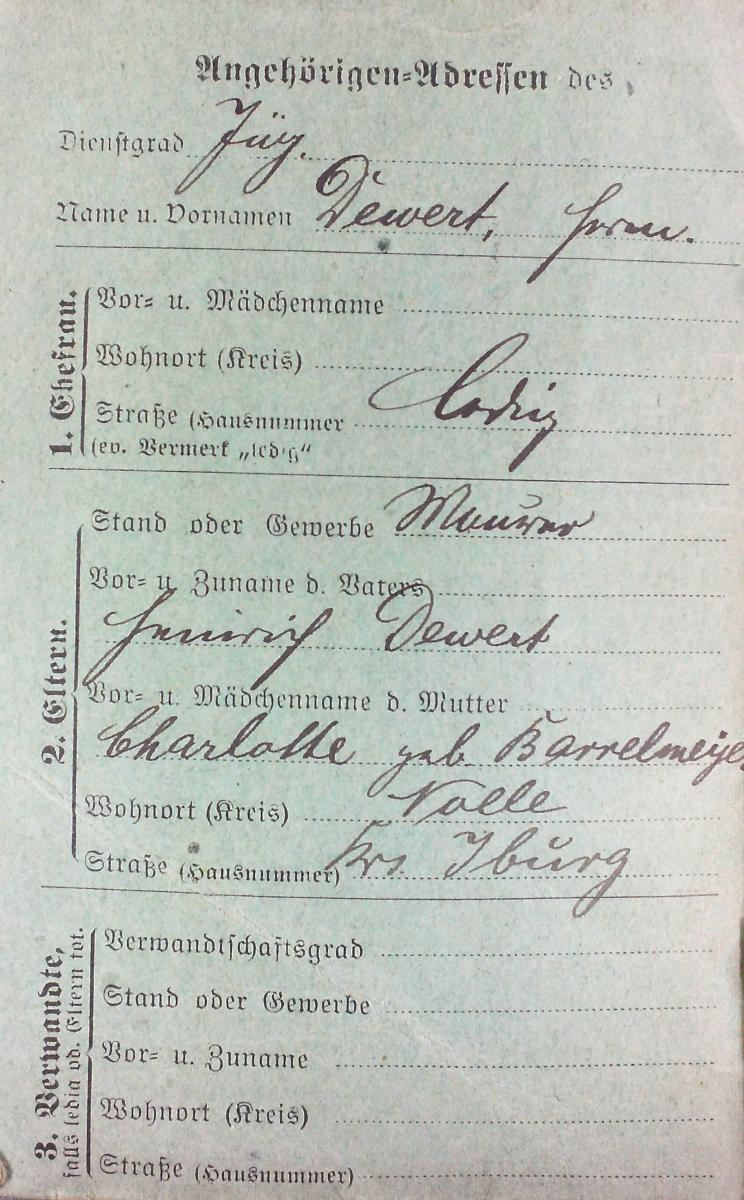 Angehörigen-Adressen des
Dienstgrad Jäg.
Name u. Vornamen Dewert, Herm.
1. Ehefrau.
Vor- u. Mädchenname
Wohnort (Kreis)
Straße (Hausnummer ledig
(ev. Vermerk „ledig“
2. Eltern.
Stand oder Gewerbe Maurer
Vor- u. Zuname d. Vaters
Heinrich Dewert
Vor- u. Mädchenname d. Mutter
Charlotte geb Barrelmeyer
Wohnort (Kreis) Nolle
Straße (Hausnummer) Krs. Iburg
3. Verwandte,
falls ledig od. Eltern tot.
Verwandtschaftsgrad
Stand oder Gewerbe
Vor- u. Zuname
Wohnort (Kreis)
Straße (Hausnummer)